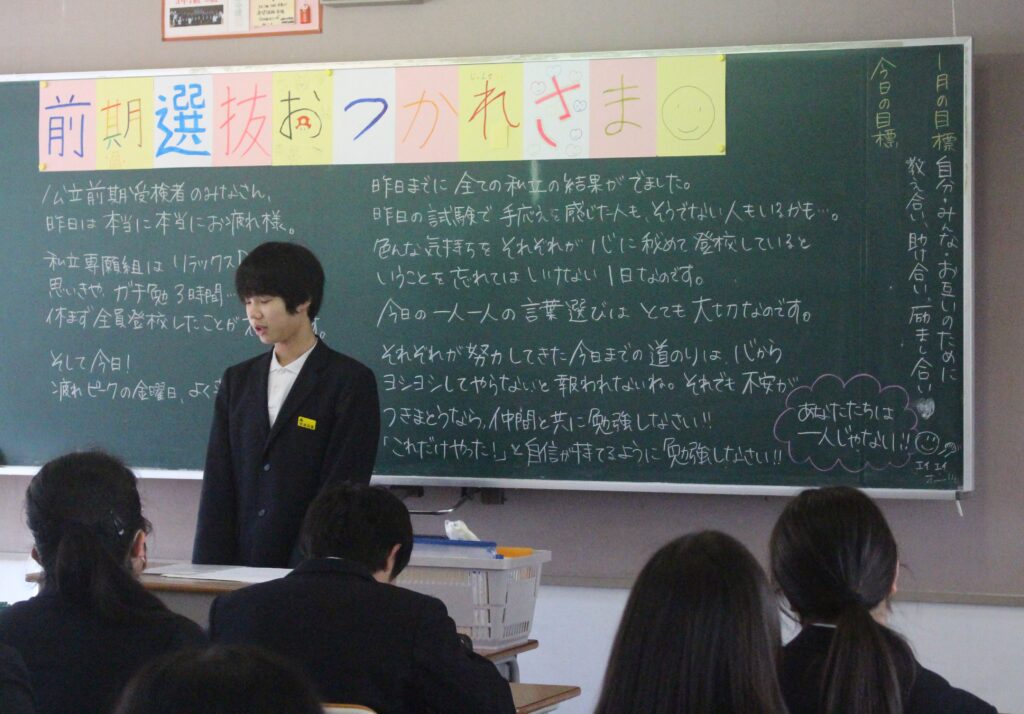 前期選抜おつかれさま
公立前期受検者のみなさん、
昨日は本当に本当にお疲れ様。
私立専願組はリラックス
思いきや ガチ勉 3時間…
休まず全員登校したことが
そして今日!
疲れピークの金曜日、よく
昨日までに全ての私立の結果がでました。
昨日の試験で手応えを感じた人も、そうでない人もいるかも…。
色んな気持ちをそれぞれが心に秘めて登校していると
いうことを忘れてはいけない1日なのです。
今日の一人一人の言葉選びはとても大切なのです。
それぞれが努力してきた今日までの道のりは、心から
ヨシヨシしてやらないと報われないね。それでも不安が
つきまとうなら、仲間と共に勉強しなさい!!
「これだけやった!」と自信が持てるように勉強しなさい!!
あなたたちは
一人じゃない!!
1月の目標 自分・みんな・お互いのために
教え合い、助け合い、励まし合い
今日の目標
エイエイ
オー!!